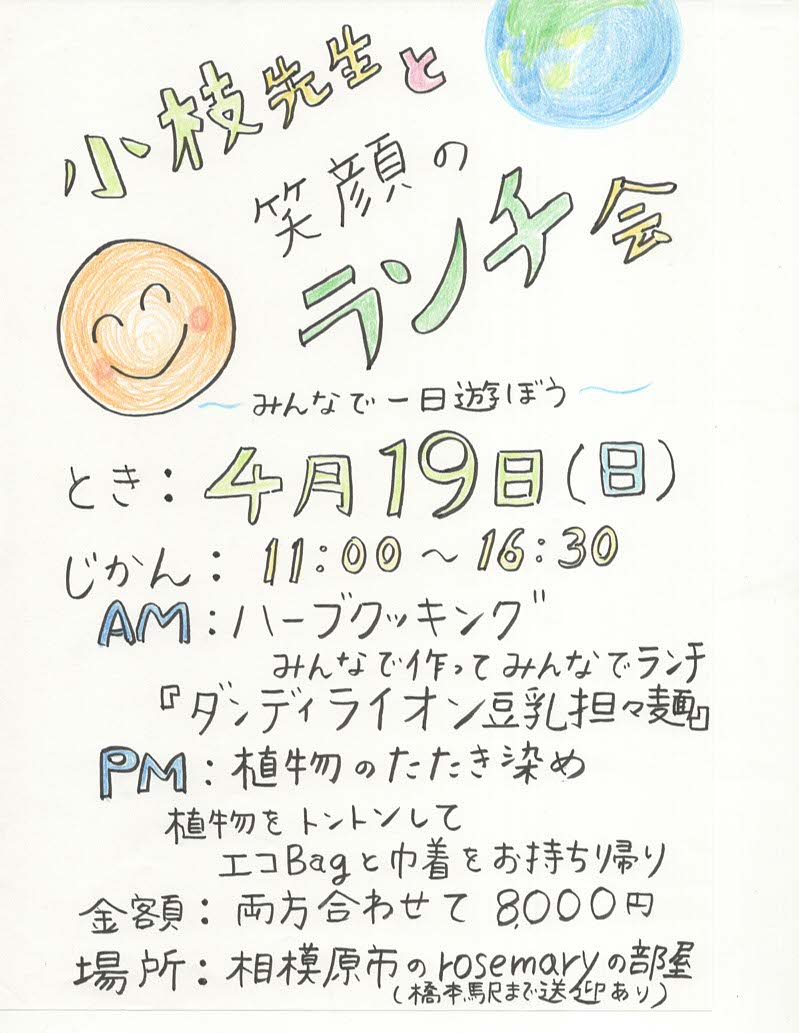 小枝先生と
笑顔の
ランチ会
～みんなで一日遊ぼう～
とき：4月19日(日)
じかん：11:00～16:30
AM：ハーブクッキング
みんなで作ってみんなでランチ
『ダンディライオン豆乳担々麺』
PM：植物のたたき染め
植物をトントンして
エコBagと巾着をお持ち帰り
金額：両方合わせて8,000円
場所：相模原市のrosemaryの部屋
(橋本駅まで送迎あり)